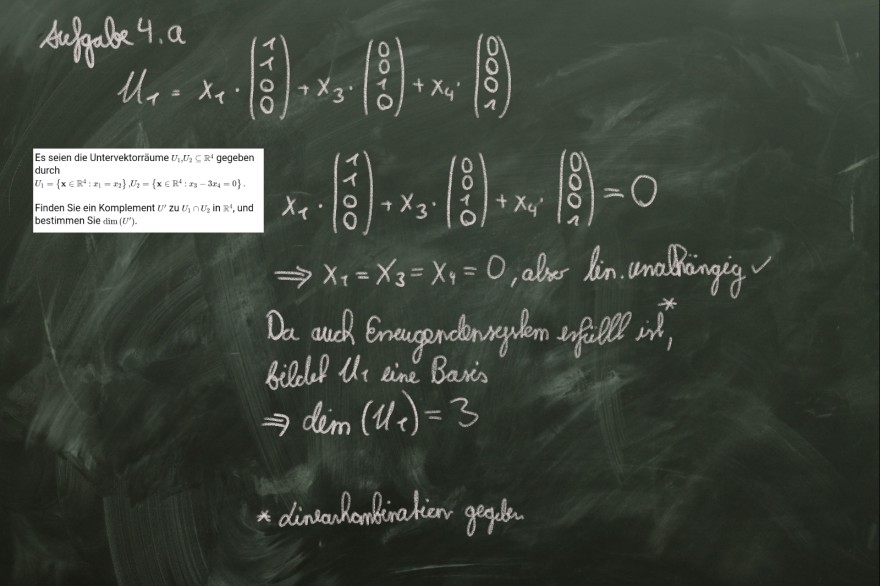 Aufgabe 4.a
U₁ = x₁ · (1 1 0 0) + x₃ · (0 0 1 0) + x₄ · (0 0 0 1)
Es seien die Untervektorräume U₁,U₂ ⊆ ℝ⁴ gegeben
durch
U₁ = {x ∈ ℝ⁴ : x₁ = x₂} ,U₂ = {x ∈ ℝ⁴ : x₃ − 3x₄ = 0} .
Finden Sie ein Komplement U′ zu U₁ ∩ U₂ in ℝ⁴, und
bestimmen Sie dim (U′).
x₁ · (1 1 0 0) + x₃ · (0 0 1 0) + x₄ · (0 0 0 1) = 0
⇒ x₁ = x₃ = x₄ = 0, also lin. unabhängig ✓
Da auch Erzeugendensystem erfüllt ist*,
bildet U₁ eine Basis
⇒ dim (U₁) = 3
* Linearkombination gegeben